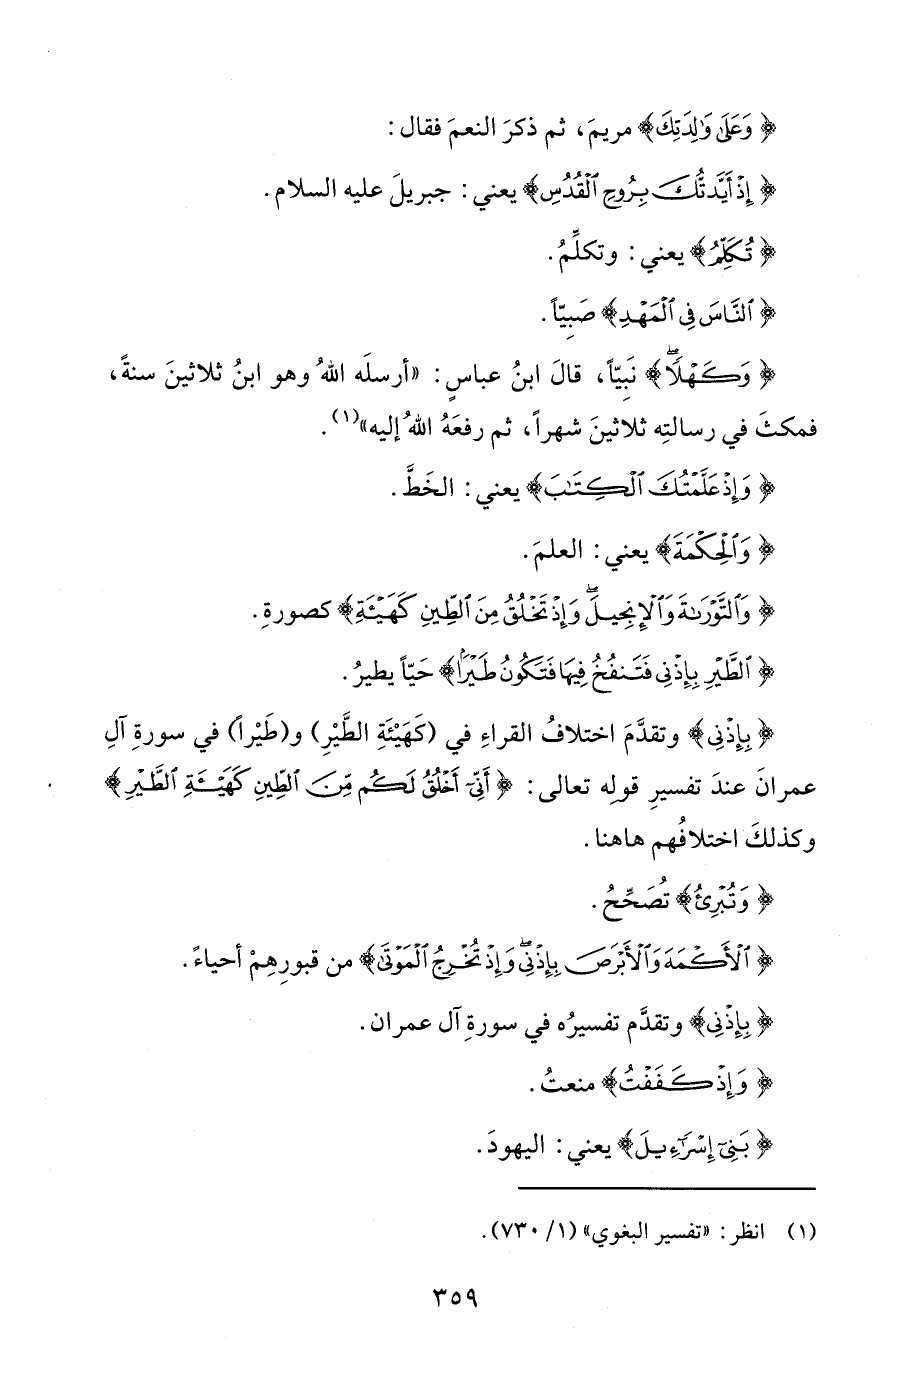 ﴿ وَعَلَىٰ وَٰلِدَتِكَ﴾ مريمَ، ثم ذكرَ النعمَ فقال:
﴿ إِذْ أَيَّدتُّكَ بِرُوحِ ٱلْقُدُسِ﴾ يعني: جبريلَ عليه السلام.
﴿ تُكَلِّمُ﴾ يعني: وتكلِّمُ.
﴿ ٱلنَّاسَ فِى ٱلْمَهْدِ﴾ صَبِيّاً.
﴿ وَكَهْلًاۖ﴾ نَبِيّاً، قالَ ابنُ عباسٍ: «أرسلَه اللهُ وهو ابنُ ثلاثينَ سنةً،
فمكثَ في رسالتِه ثلاثينَ شهراً، ثم رفعَهُ اللهُ إليه»(١).
﴿ وَإِذْ عَلَّمْتُكَ ٱلْكِتَٰبَ﴾ يعني: الخَطَّ.
﴿ وَٱلْحِكْمَةَ﴾ يعني: العلمَ.
﴿ وَٱلتَّوْرَىٰةَ وَٱلْإِنجِيلَۖ وَإِذْ تَخْلُقُ مِنَ ٱلطِّينِ كَهَيْـَٔةِ﴾ كصورةِ.
﴿ ٱلطَّيْرِ بِإِذْنِى فَتَنفُخُ فِيهَا فَتَكُونُ طَيْرًۢا﴾ حَيّاً يطيرُ.
﴿ بِإِذْنِى﴾ وتقدَّمَ اختلافُ القراءِ في (كَهَيْئَةِ الطَّيْرِ) و(طَيْراً) في سورةِ آلِ
عمرانَ عندَ تفسيرِ قولِه تعالى: ﴿ أَنِّىٓ أَخْلُقُ لَكُم مِّنَ ٱلطِّينِ كَهَيْـَٔةِ ٱلطَّيْرِ ﴾
وكذلكَ اختلافُهم هاهنا.
﴿ وَتُبْرِئُ﴾ تُصَحِّحُ.
﴿ ٱلْأَكْمَهَ وَٱلْأَبْرَصَ بِإِذْنِىۖ وَإِذْ تُخْرِجُ ٱلْمَوْتَىٰ﴾ من قبورِهِمْ أحياءً.
﴿ بِإِذْنِى﴾ وتقدَّم تفسيرُه في سورةِ آل عمران.
﴿ وَإِذْ كَفَفْتُ﴾ منعتُ.
﴿ بَنِىٓ إِسْرَٰٓءِيلَ﴾ يعني: اليهودَ.
(١) انظر: «تفسير البغوي» (١/ ٧٣٠).
٣٥٩